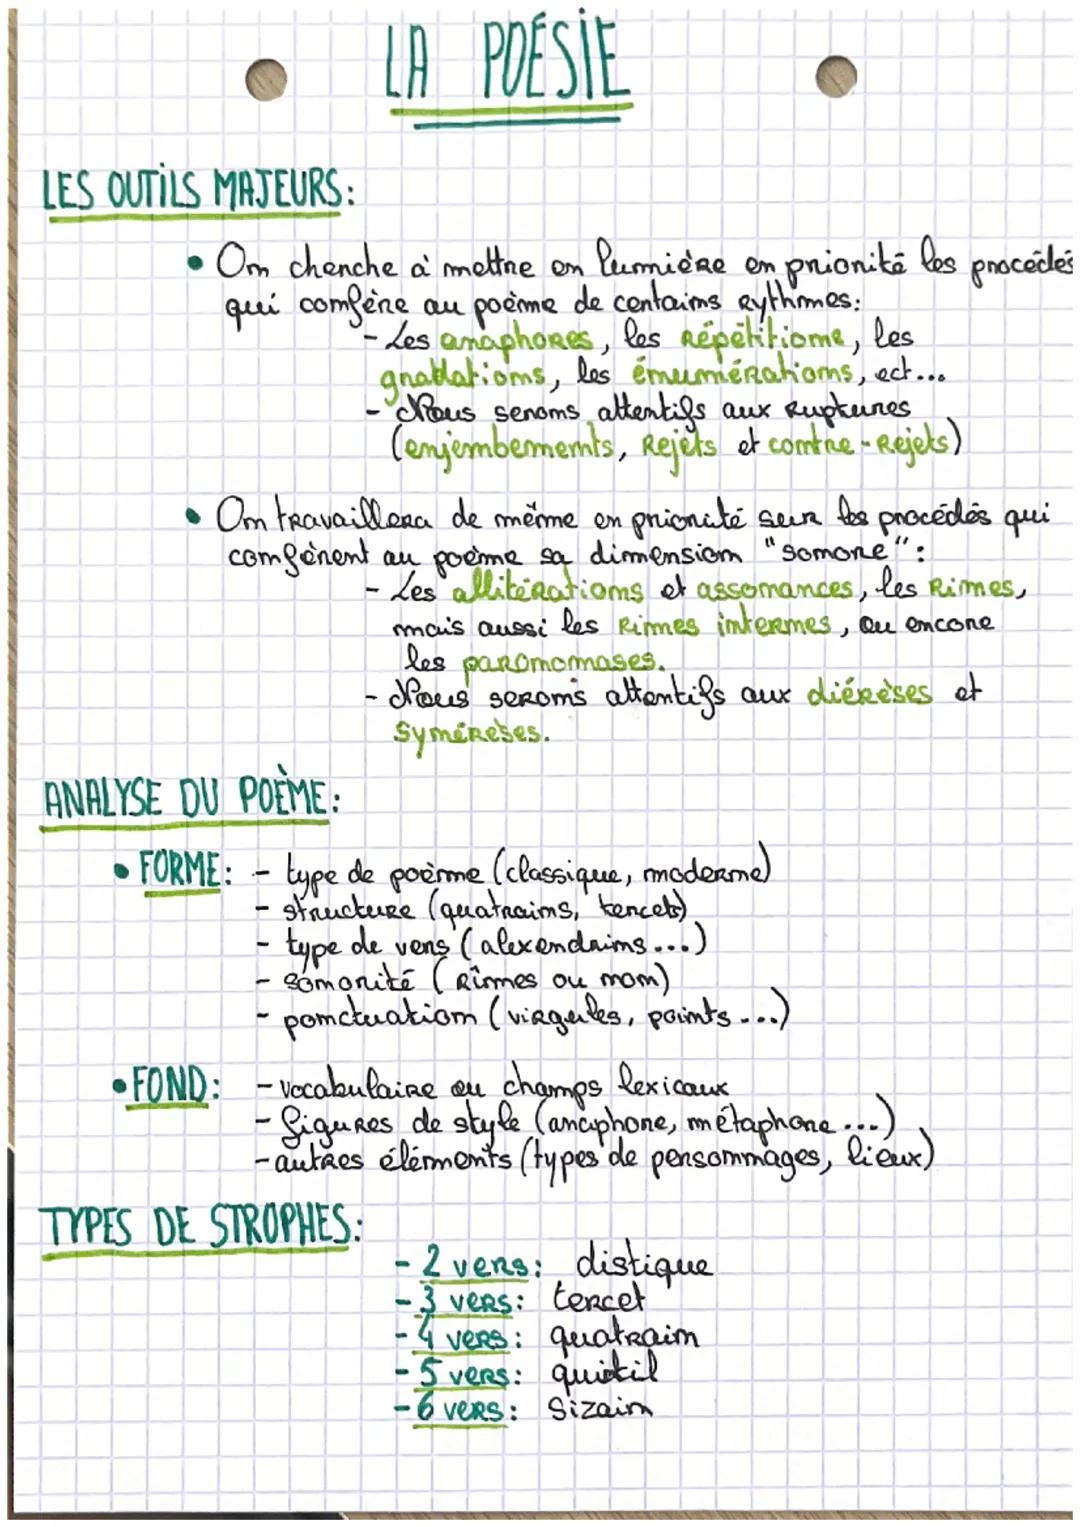 LA POÉSIE
LES OUTILS MAJEURS:
• On cherche à mettre en lumière en priorité les procédés
qui confère au poème de certains rythmes:
- Les anaphores, les répétitions, les
gradations, les énumérations, ect...
- Nous serons attentifs aux ruptures
(enjembements, rejets et contre-rejets)
• On travaillera de même en priorité sur les procédés qui
confèrent au poème sa dimension "sonore":
- Les allitérations et assonances, les rimes,
mais aussi les rimes internes, ou encore
les paronomases.
- Nous serons attentifs aux diérèses et
synérèses.
ANALYSE DU POÈME:
• FORME: - type de poème (classique, moderne)
- structure (quatrains, tercets)
- type de vers (alexendrins...)
- sonorité (rîmes ou non)
- ponctuation (virgules, points...)
• FOND: - vocabulaire ou champs lexicaux
- figures de style (anaphore, métaphore...)
- autres éléments (types de personnages, lieux)
TYPES DE STROPHES:
- 2 vers: distique
- 3 vers: tercet
- 4 vers: quatrain
- 5 vers: quintil
- 6 vers: sizain